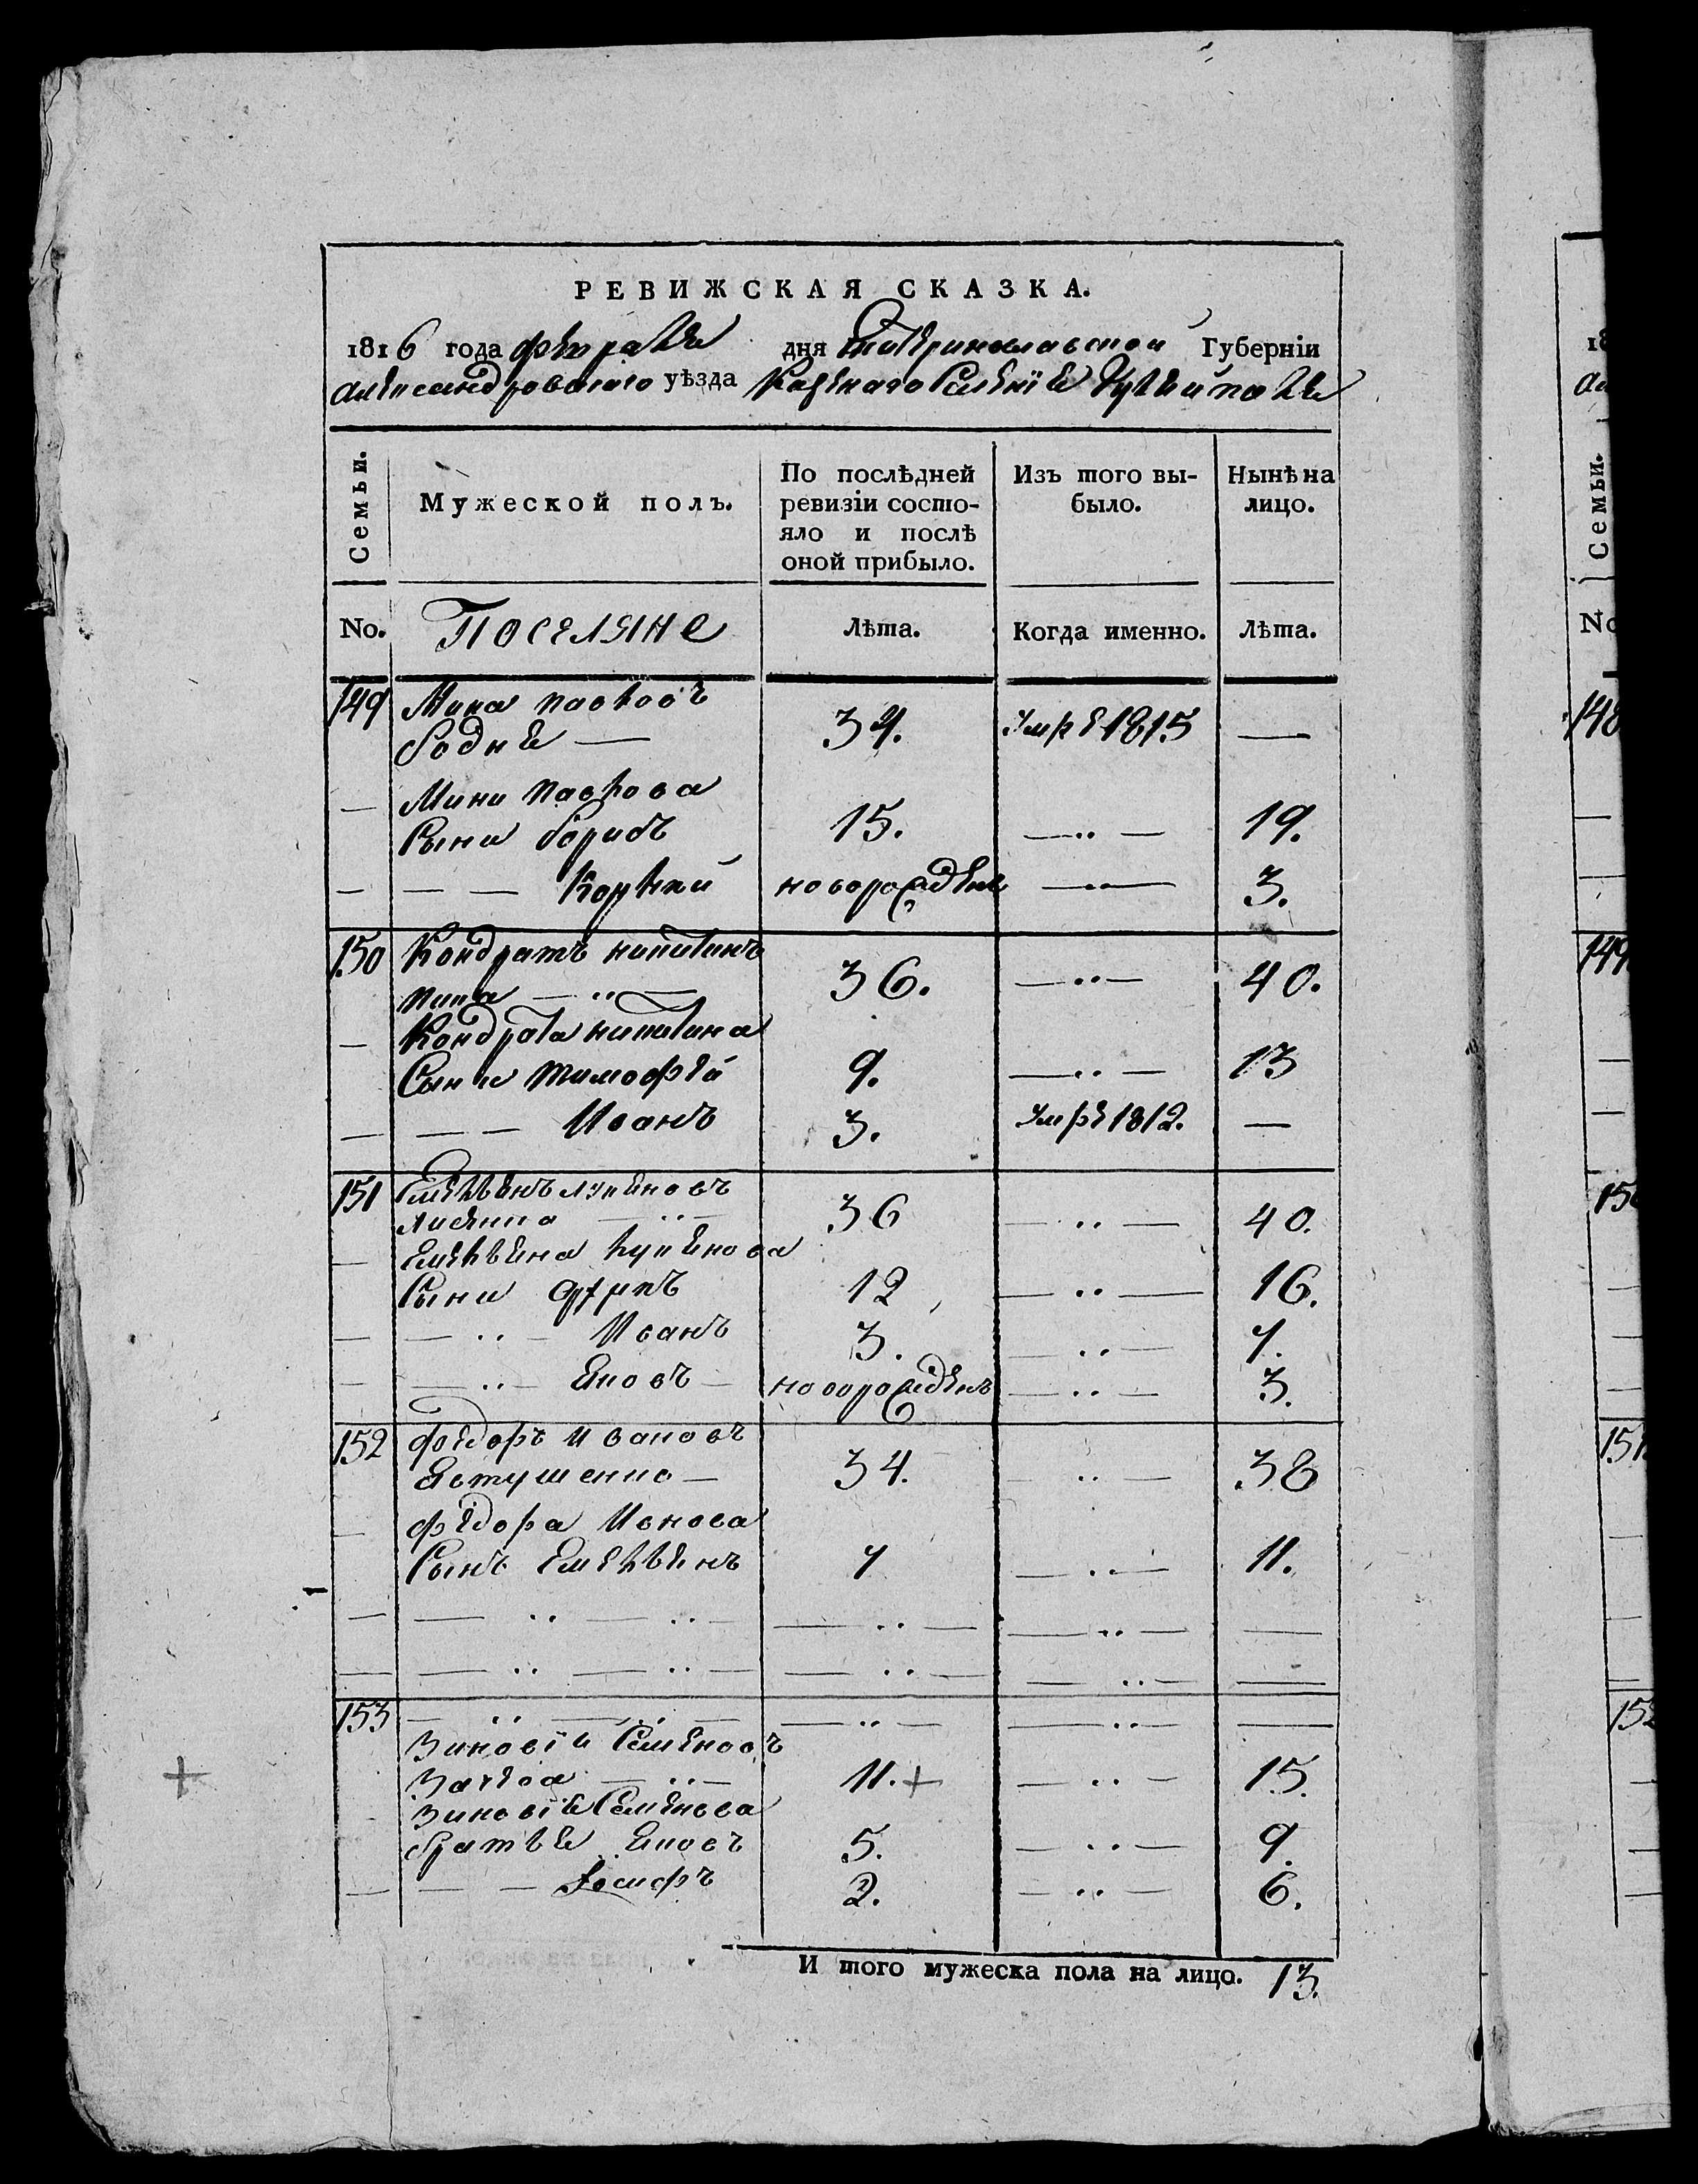 РЕВИЖСКАЯ СКАЗКА.
1816 года февраля дня Екатеринославской Губерніи
александровскаго уѣзда Казеннаго Селенія Гуляйполя
Семьи.
Мужеской полъ.
По послѣдней ревизіи состо-
яло и послѣ
оной прибыло.
Изъ того вы-
было.
Нынѣ на
лицо.
No.
Поселяне
Лѣта.
Когда именно.
Лѣта.
149 Мина павловъ
34. Умре 1815 —
— Мини павлова
Сыни борисъ 15. — 19.
— — — Корнѣй новорожденъ — 3.
150 Кондратъ никитинъ
36. — 40.
— Кондрата никитина
Сыни тимофей 9. — 13
— — — Иванъ 3. Умре 1812. —
151 Емельянъ лукяновъ
36 — 40.
— Емельяна лукянова
Сыни 12 — 16.
— — Иванъ 3. — 7.
— — Яковъ — новорожденъ — 3.
152 федоръ Ивановъ
Явтушенко — 34. — 38
— федора Иванова
Сынъ Емельянъ 7 — 11.
153
Зиновій Семеновъ
11. + — 15.
Зиновія Семенова
братья Яковъ 5. — 9.
— — — Іосифъ 2. — 6.
И того мужеска пола на лицо. 13.
18
Семьи.
No
148
149
150
151
152